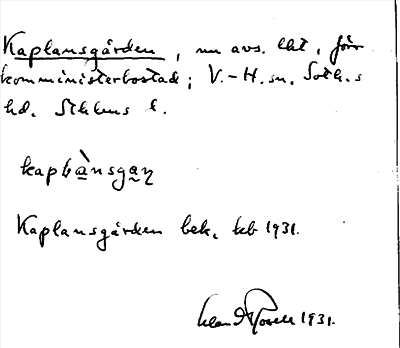 Kaplansgården, nu avs. lht, förr
komministerbostad; V.-H. sn. Soth.s
hd. Sthlms l.
kaplànsgaɳ
Kaplansgården bek. kb 1931.
1931.